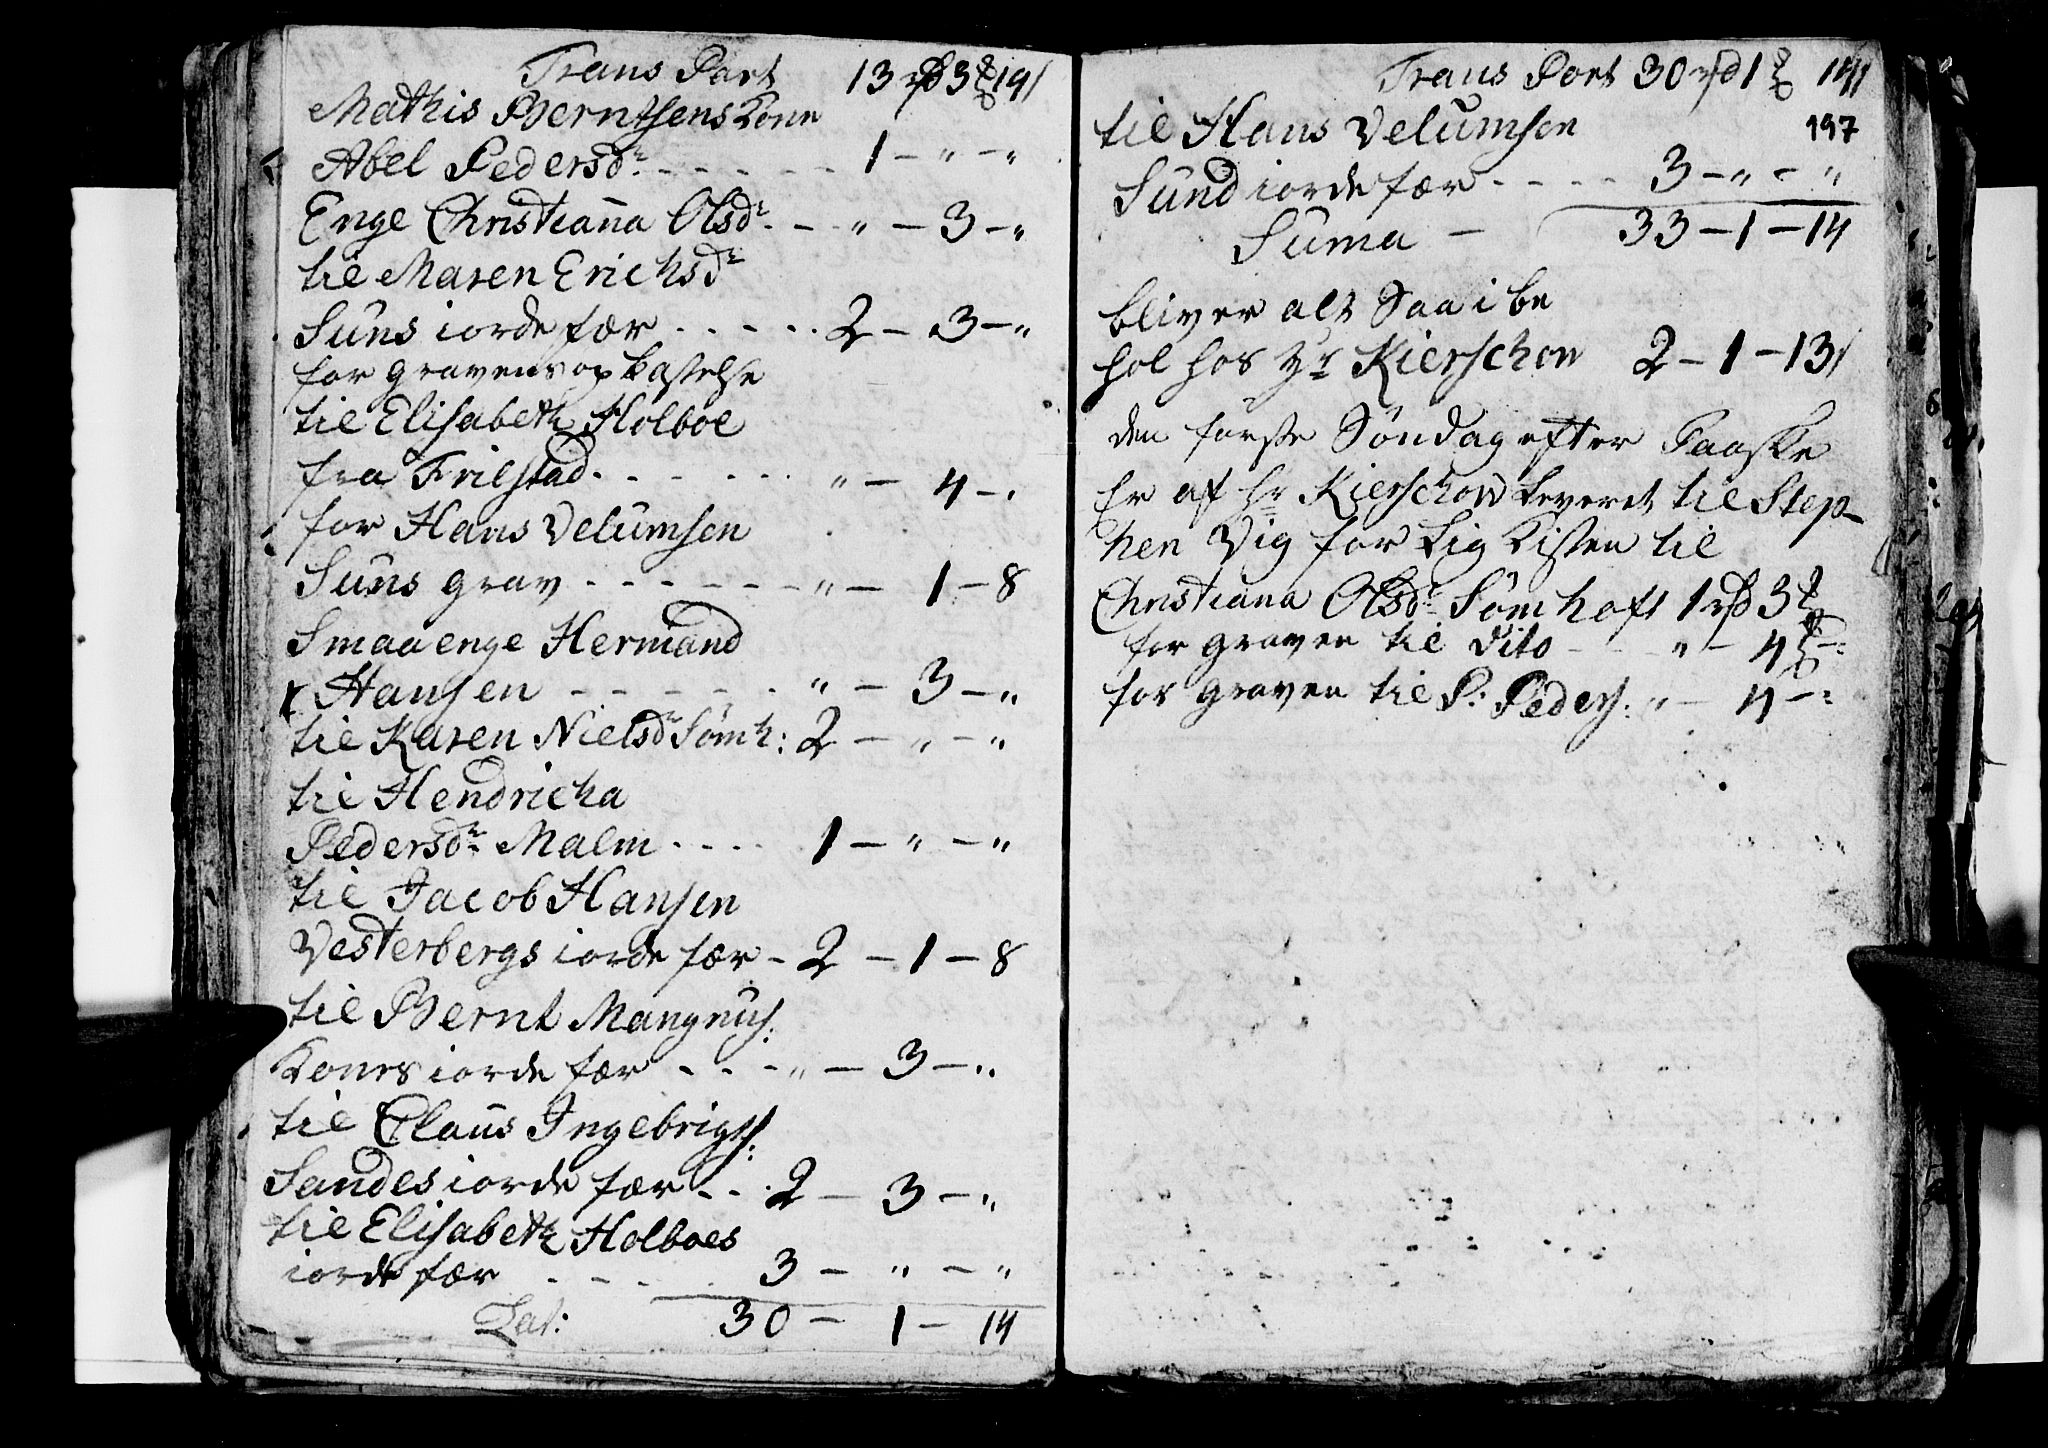 Trans Port 13 rd 3 ℔ 14
Mathis Berntsens Kone
Abel Pedersdr. - - - - - - 1 - " - "
Enge Christiana Olsdr. - - " - 3 - "
til Maren Erichsdr
Suns iordefær . . . . . 2 - 3 - "
for gravens opkastelse
til Elisabeth Holboe
fra Trilstad - - - - - - " - 4 - "
for Hans Velumsen
Suns grav - - - - - - " - 1 - 8
Smaa enge Hermand
Hansen - - - - - - " - 3 - "
til Karen Nielsdr Sømh: 2 - " - "
til Hendricha
Pedersdr. Malm . . . . 1 - " - "
til Jacob Hansen
Vesterbergs iorde fær - 2 - 1 - 8
til Bernt Mangnus:
Kones iorde fær - - - " - 3 - "
til Claus Ingebrigts:
Sandes iorde fær - - . 2 - 3 - "
til Elisabeth Holboes
iorde fær - - - - 3 - " - "
Lat: 30 - 1 - 14
Trans Port 30 rd 1 ℔ 14
197
til Hans Velumsen
Sund iorde fær - - - - 3 - " - "
Suma - 33 - 1 - 14
bliver alt Saa i be
hol hos Hr Kierschow 2 - 1 - 13
den første Søndag efter Paaske
Er af Hr Kierschow Leveret til Step-
hen Vig for Lig Kisten til
Christiana Olsdr. Sømhoft 1 rd 3 ℔
for graven til dito - - " - 4 ℔ - "
for graven til P: Peders: " - 4 - "